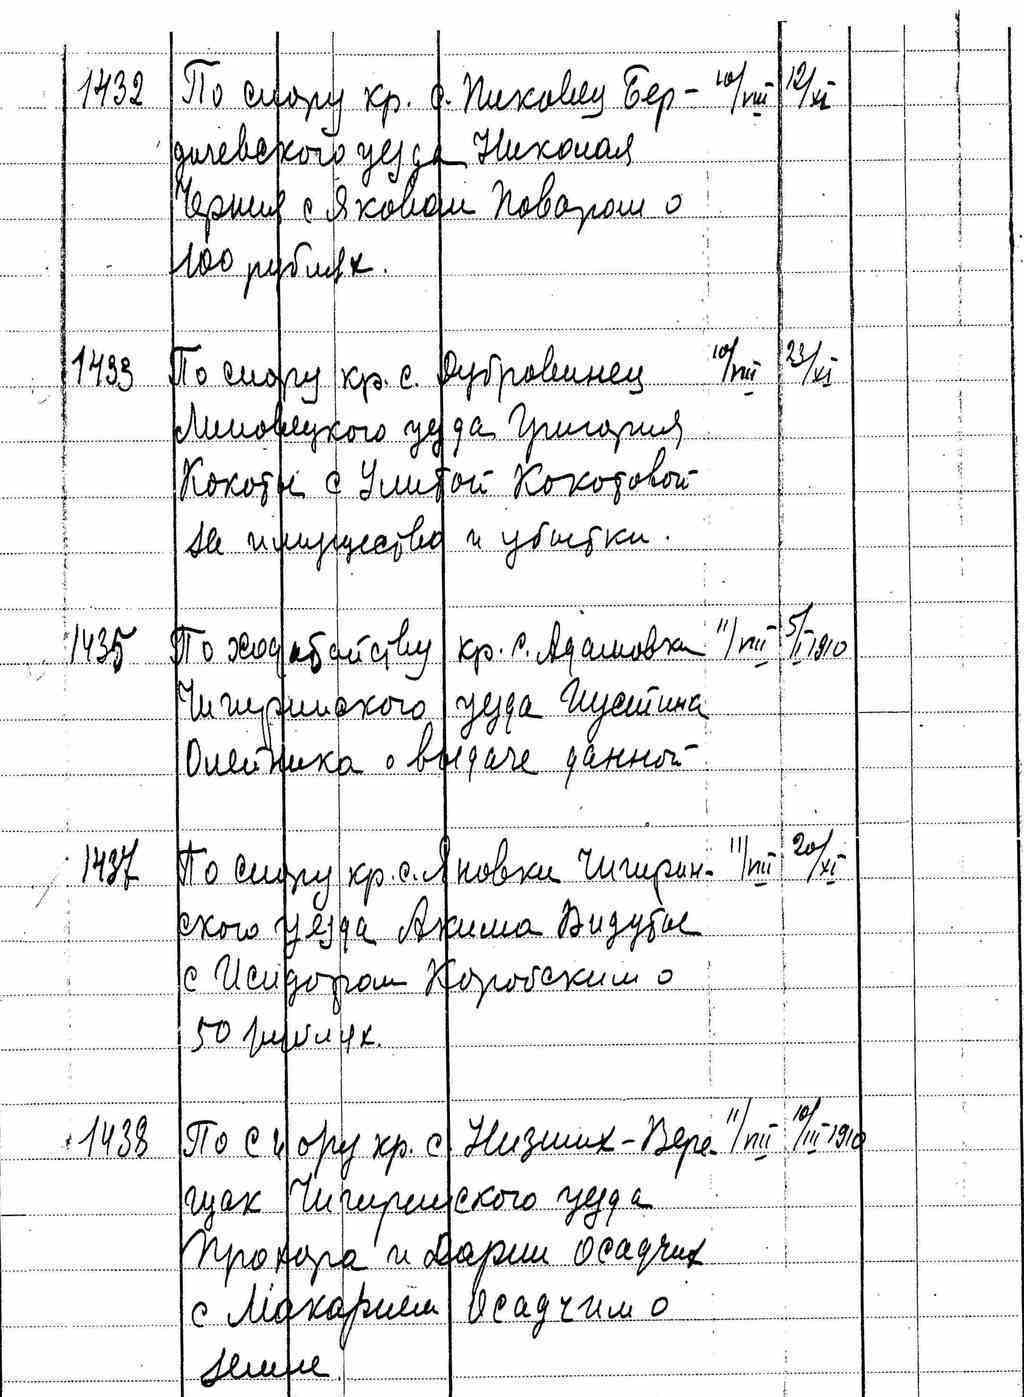 1432 По спору кр. с. Пиковец Бер- 10/VIII 12/XI
дичевского уезда Николая
Черния с Яковом Поваром о
100 рублях.
1433 По спору кр. с. Дубровинец 10/VIII 23/XI
Липовецкого уезда Григория
Кокоты с Улитой Кокотовой
за имущество и убытки.
1435 По ходатайству кр. с. Адамовки 11/VIII 5/I 1910
Чигиринского уезда Иустина
Олейника о выдаче данной
1437 По спору кр. с. Яновки Чигирин- 11/VIII 20/XI
ского уезда Акима Видубы
с Исидором Коробским о
50 рублях.
1438 По спору кр. с. Низших-Вере- 11/VIII 10/III 1910
щак Чигиринского уезда
Прохора и Дарии Осадчих
с Макарием Осадчим о
земле.